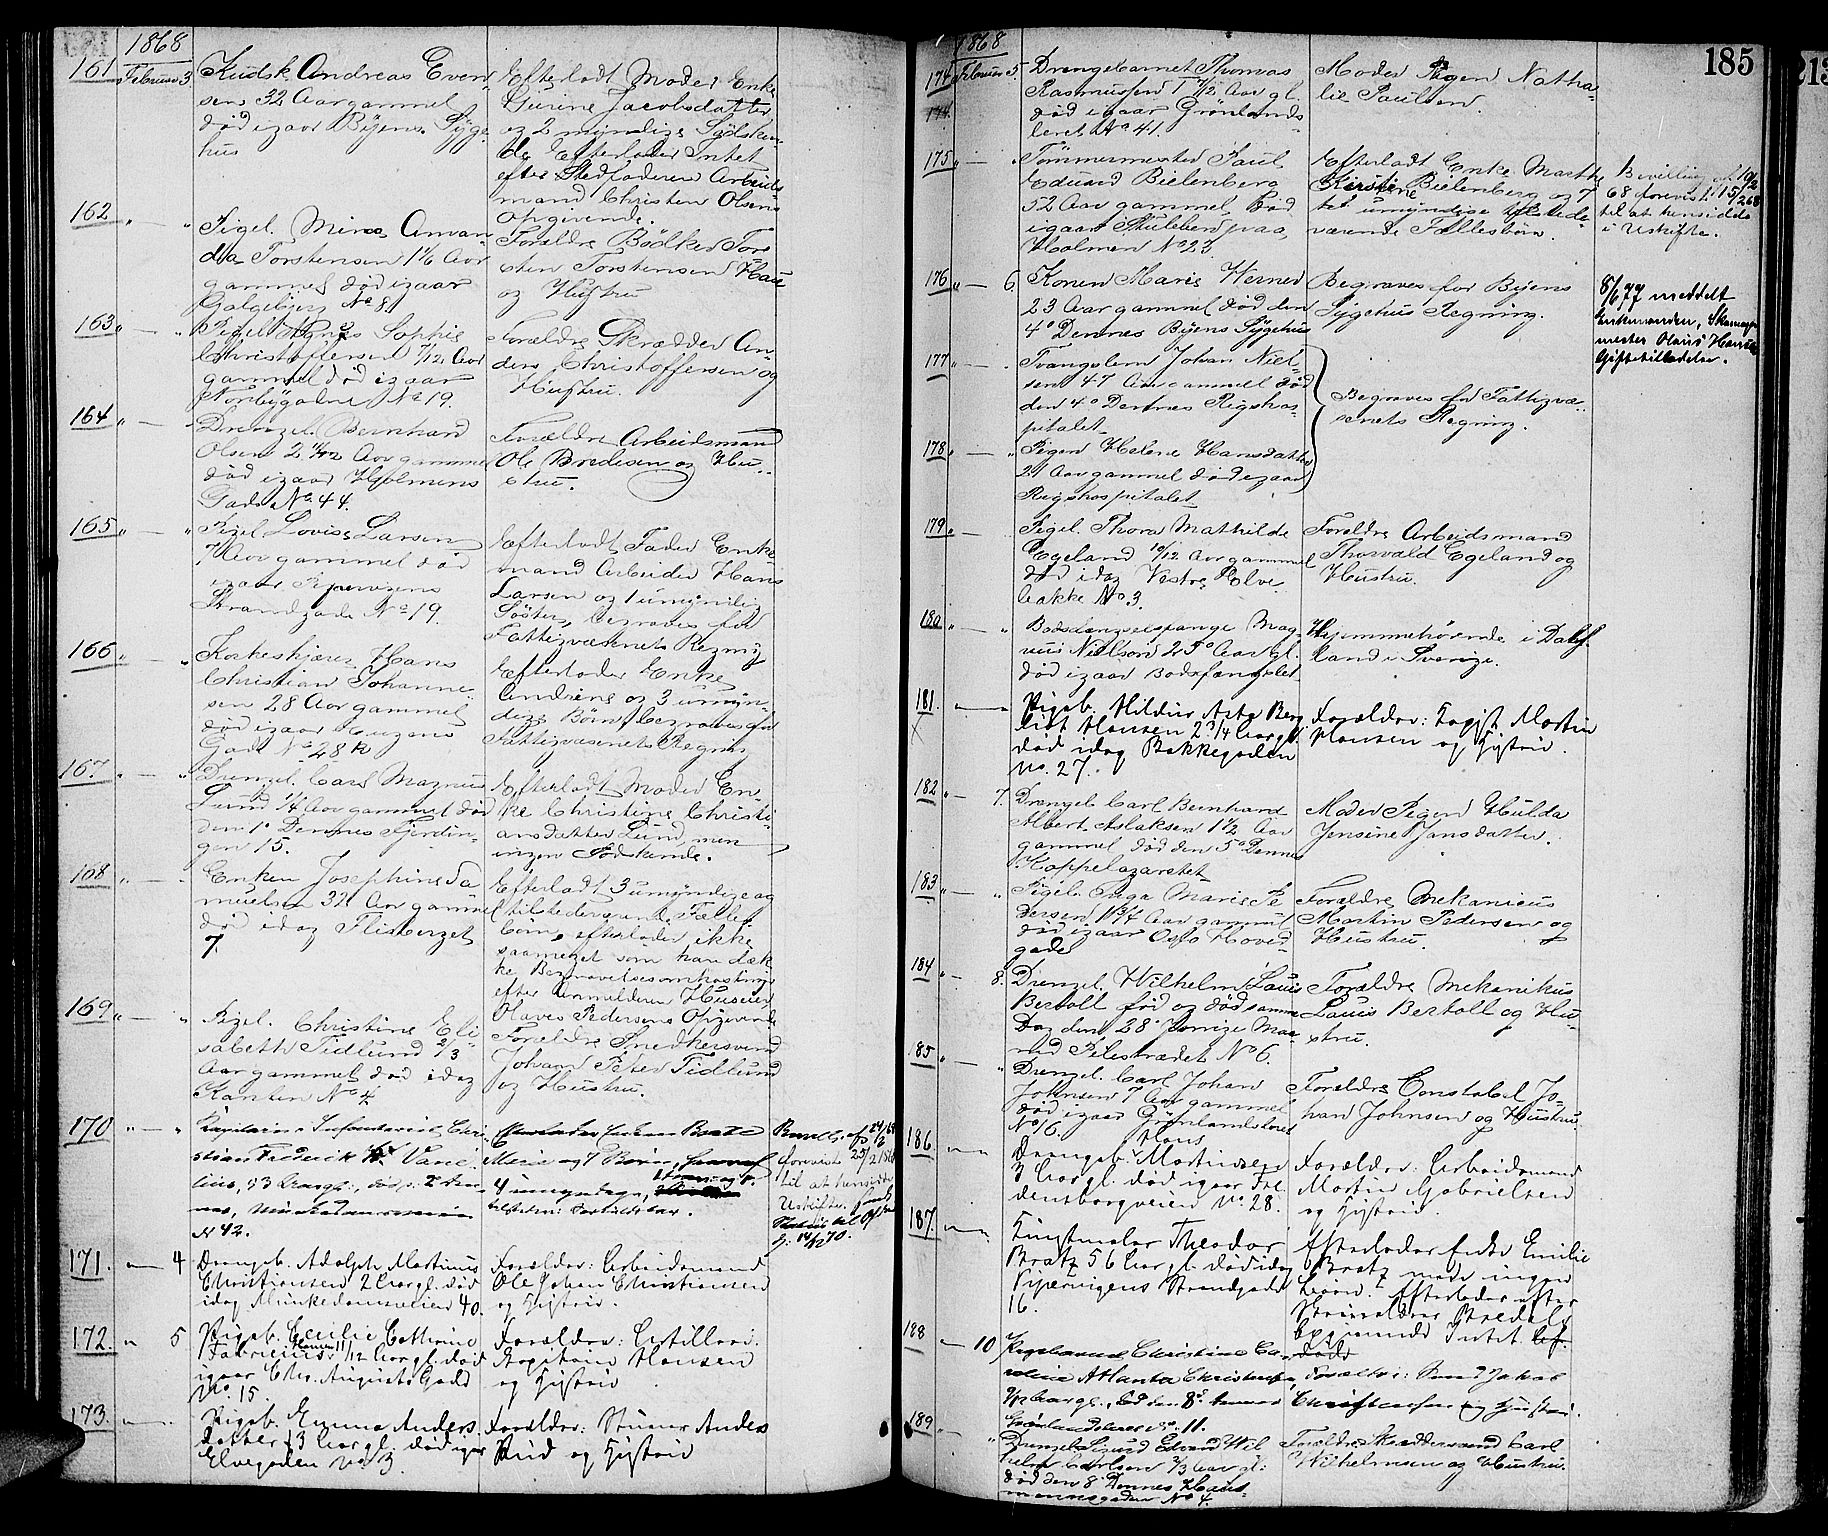 1868
161 Februar 3 Kudsk Andreas Even-
sen 32 Aar gammel
død igaar Byens Syge-
hus
Efterladt Moder Enke
Gurine Jacobsdatter
og 2 myndige Sødsken-
de Efterlader Intet
efter Stedfaderen Arbeids-
mand Christen Olsens
Opgivende.
162 " — " Pigeb. Mina Aman-
da Torstensen 1 1/6 Aar
gammel død igaar
Galgebjerg No 81
Forældre Bødker Tor-
sten Torstensen
og Hustru
163 " — " Pigeb. Agnes Sophie
Christoffersen 7/12 Aar
gammel død igaar
Norbygaden No 19.
Forældre Skrædder An-
ders Christoffersen og
Hustru.
164 " — " Drengeb. Bernhard
Olsen 2 11/12 Aar gammel
død igaar Holmens
Gade No. 44.
Forældre Arbeidsmand
Ole Bredesen og Hu-
stru.
165 " — " Pigeb. Lovise Larsen
7 Aar gammel død
igaar Pipervigens
Strandgade No 19.
Efterladt Fader Enke-
mand Arbeider Hans
Larsen og 1 umyndig
Søster, begraves for
Fattigvæsnets Regning
166 " — " Korkeskjærer Hans
Christian Johanne-
sen 28 Aar gammel
død igaar
Gade No 28 k
Efterlader Enke
Andrine og 3 umyn-
dige Børn, begraves for
Fattigvæsenets Regning
167 " — " Drengeb. Carl Magnus
Lund 1/4 Aar gammel død
den 1° Dennes Fjerdin-
gen 15.
Efterladt Moder En-
ke Christine Christi-
ansdatter Lund, men
ingen Sødskende.
168 " — " Enken Josephine Sa-
muelsen 32 Aar gammel
død idag Flisberget
7.
Efterladt 3 umyndige og
tilstedeværende Fælles
børn, efterlader ikke
saameget som kan dæk-
ke Begravelsesomkostning
efter Anmelderen Huseier
Olaves Pedersens Opgivende
169 " — " Pigeb. Christine Eli-
sabeth Tidlund 2/3
Aar gammel død idag
Kanten No 4
Forældre Snedkersvend
Johan Peter Tidlund
og Hustru.
170 " — " Kapitain i Infanteriet Chri-
stian Frederik
53 Aargl., død
N 42.
Marie og 7 Børn,
4 umyndige,
Bevillg. af 24/2 68
forevist 25/2 1868
til at hensidde
i Uskifte.
171. — 4 Drengeb. Adolph Martinus
Christiansen 2 Aar gl. død
idag Munkedamsveien 40.
Forældre: Arbeidsmand
Ole Johan Christiansen
og Hustru.
172. " 5 Pigeb. Cecilie Cathrine
Fabricius Hansen 11/12 Aar gl. død
igaar Chr. Augusts Gade
No. 15.
Forældre: Artilleri-
Kapitain Hansen
og Hustru
173. — Pigeb. Emma Anders-
datter 13 Aar gl. død igaar
Elvegaden No 3.
Forældre: Stuer Anders
og Hustru
1868
185
213
174 Februar 5. Drengebarnet Thomas
Rasmussen 1 7/12 Aar gl.
død igaar Grønlands-
leret No 41.
Moder Pigen Natha-
lie Paulsen.
174.
175 " — " Tømmermester Paul
Eduard Bielenberg
52 Aar gammel, død
igaar paa
Holmen No 23
Efterladt Enke Marthe
Kirstine Bielenberg og 7
umyndige tilstede-
værende Fællesbørn.
Bevilling af 10/2
68 forevist 15/2 68
til at hensidde
i Uskifte.
176 " — 6. Konen Marie Werner
23 Aar gammel død den
4° Dennes Byens Sygehus
Begraves for Byens
Sygehus Regning.
8/6 77 meddelt
Enkemanden, Skomager-
mester Olaus Hansen
Giftetilladelse.
177 " — . Tvangslem Johan Niel-
sen 47 Aar gammel død
den 4° Dennes Rigshos-
pitalet
Begraves for Fattigvæ-
senets Regning.
178 " — " Pigen Helene Hansdatter
21 Aar gammel død igaar
Rigshospitalet
179 " — Pigeb. Thora Mathilde
Egeland 10/12 Aar gammel
død idag Vestre Elve-
bakke No 3.
Forældre Arbeidsmand
Thorvald Egeland og
Hustru.
180 " — " Bodsfængselsfange Mag-
nus Nielson 25° Aar gl.
død igaar Bodsfængslet
Hjemmehørende i Dals-
land i Sverige.
181. — Pigeb. Hildur Asta Berg-
liot Hansen 2 3/4 Aar gl.
død idag Bakkegaden
No. 27.
Forældre: Fogt. Martin
Hansen og Hustru.
182 " — 7. Drengeb. Carl Bernhard
Albert Aslaksen 1 1/2 Aar
gammel død den 5° Dennes
Koppelazarettet
Moder Pigen Hulda
Jensine Jansdatter.
183 " — " Pigeb. Inga Marie Pe-
dersen 1 3/4 Aar gammel
død igaar Oslo Hoved-
gade
Forældre Mekanicus
Martin Pedersen og
Hustru.
184 " — 8. Drengeb. Wilhelm Lauis
Bertoll fød og død samme
Dag den 28° forrige Maa-
ned Pilestrædet No 6.
Forældre Mekanikus
Lauis Bertoll og Hu-
stru.
185 " — " Drengeb. Carl Johan
Johnsen 7 Aar gammel
død igaar Grønlandsleret
No 16.
Forældre Constabel Jo-
han Johnsen og Hustru.
186 — Drengeb. Hans Martinsen
3 Aar gl. død igaar Fre-
densborgveien No. 28.
Forældre: Arbeidsmand
Martin Gabrielsen
og Hustru.
187. — Kunstmaler Theodor
Bratz 56 Aar gl. død idag
Pipervigens Strandgade
16.
Efterlader Enke Emilie
Bratz, men ingen
Børn. Efterlader efter
Bredals
Opgivende Intet.
188 — 10 Pigebarnet Christine Ca-
roline Atlanta Christensen
Aar gl., død den 8° dennes
Grønlandsleret No. 11.
Forældre: Jakob
Christensen og Hustru.
189 " — " Drengeb. Sigurd Edvard Wil-
helm Carlsen 2/3 Aar gl.
død den 8° Dennes Haus-
mannsgaden No 4.
Forældre Skræddersvend Carl
Wilhelmsen og Hustru.